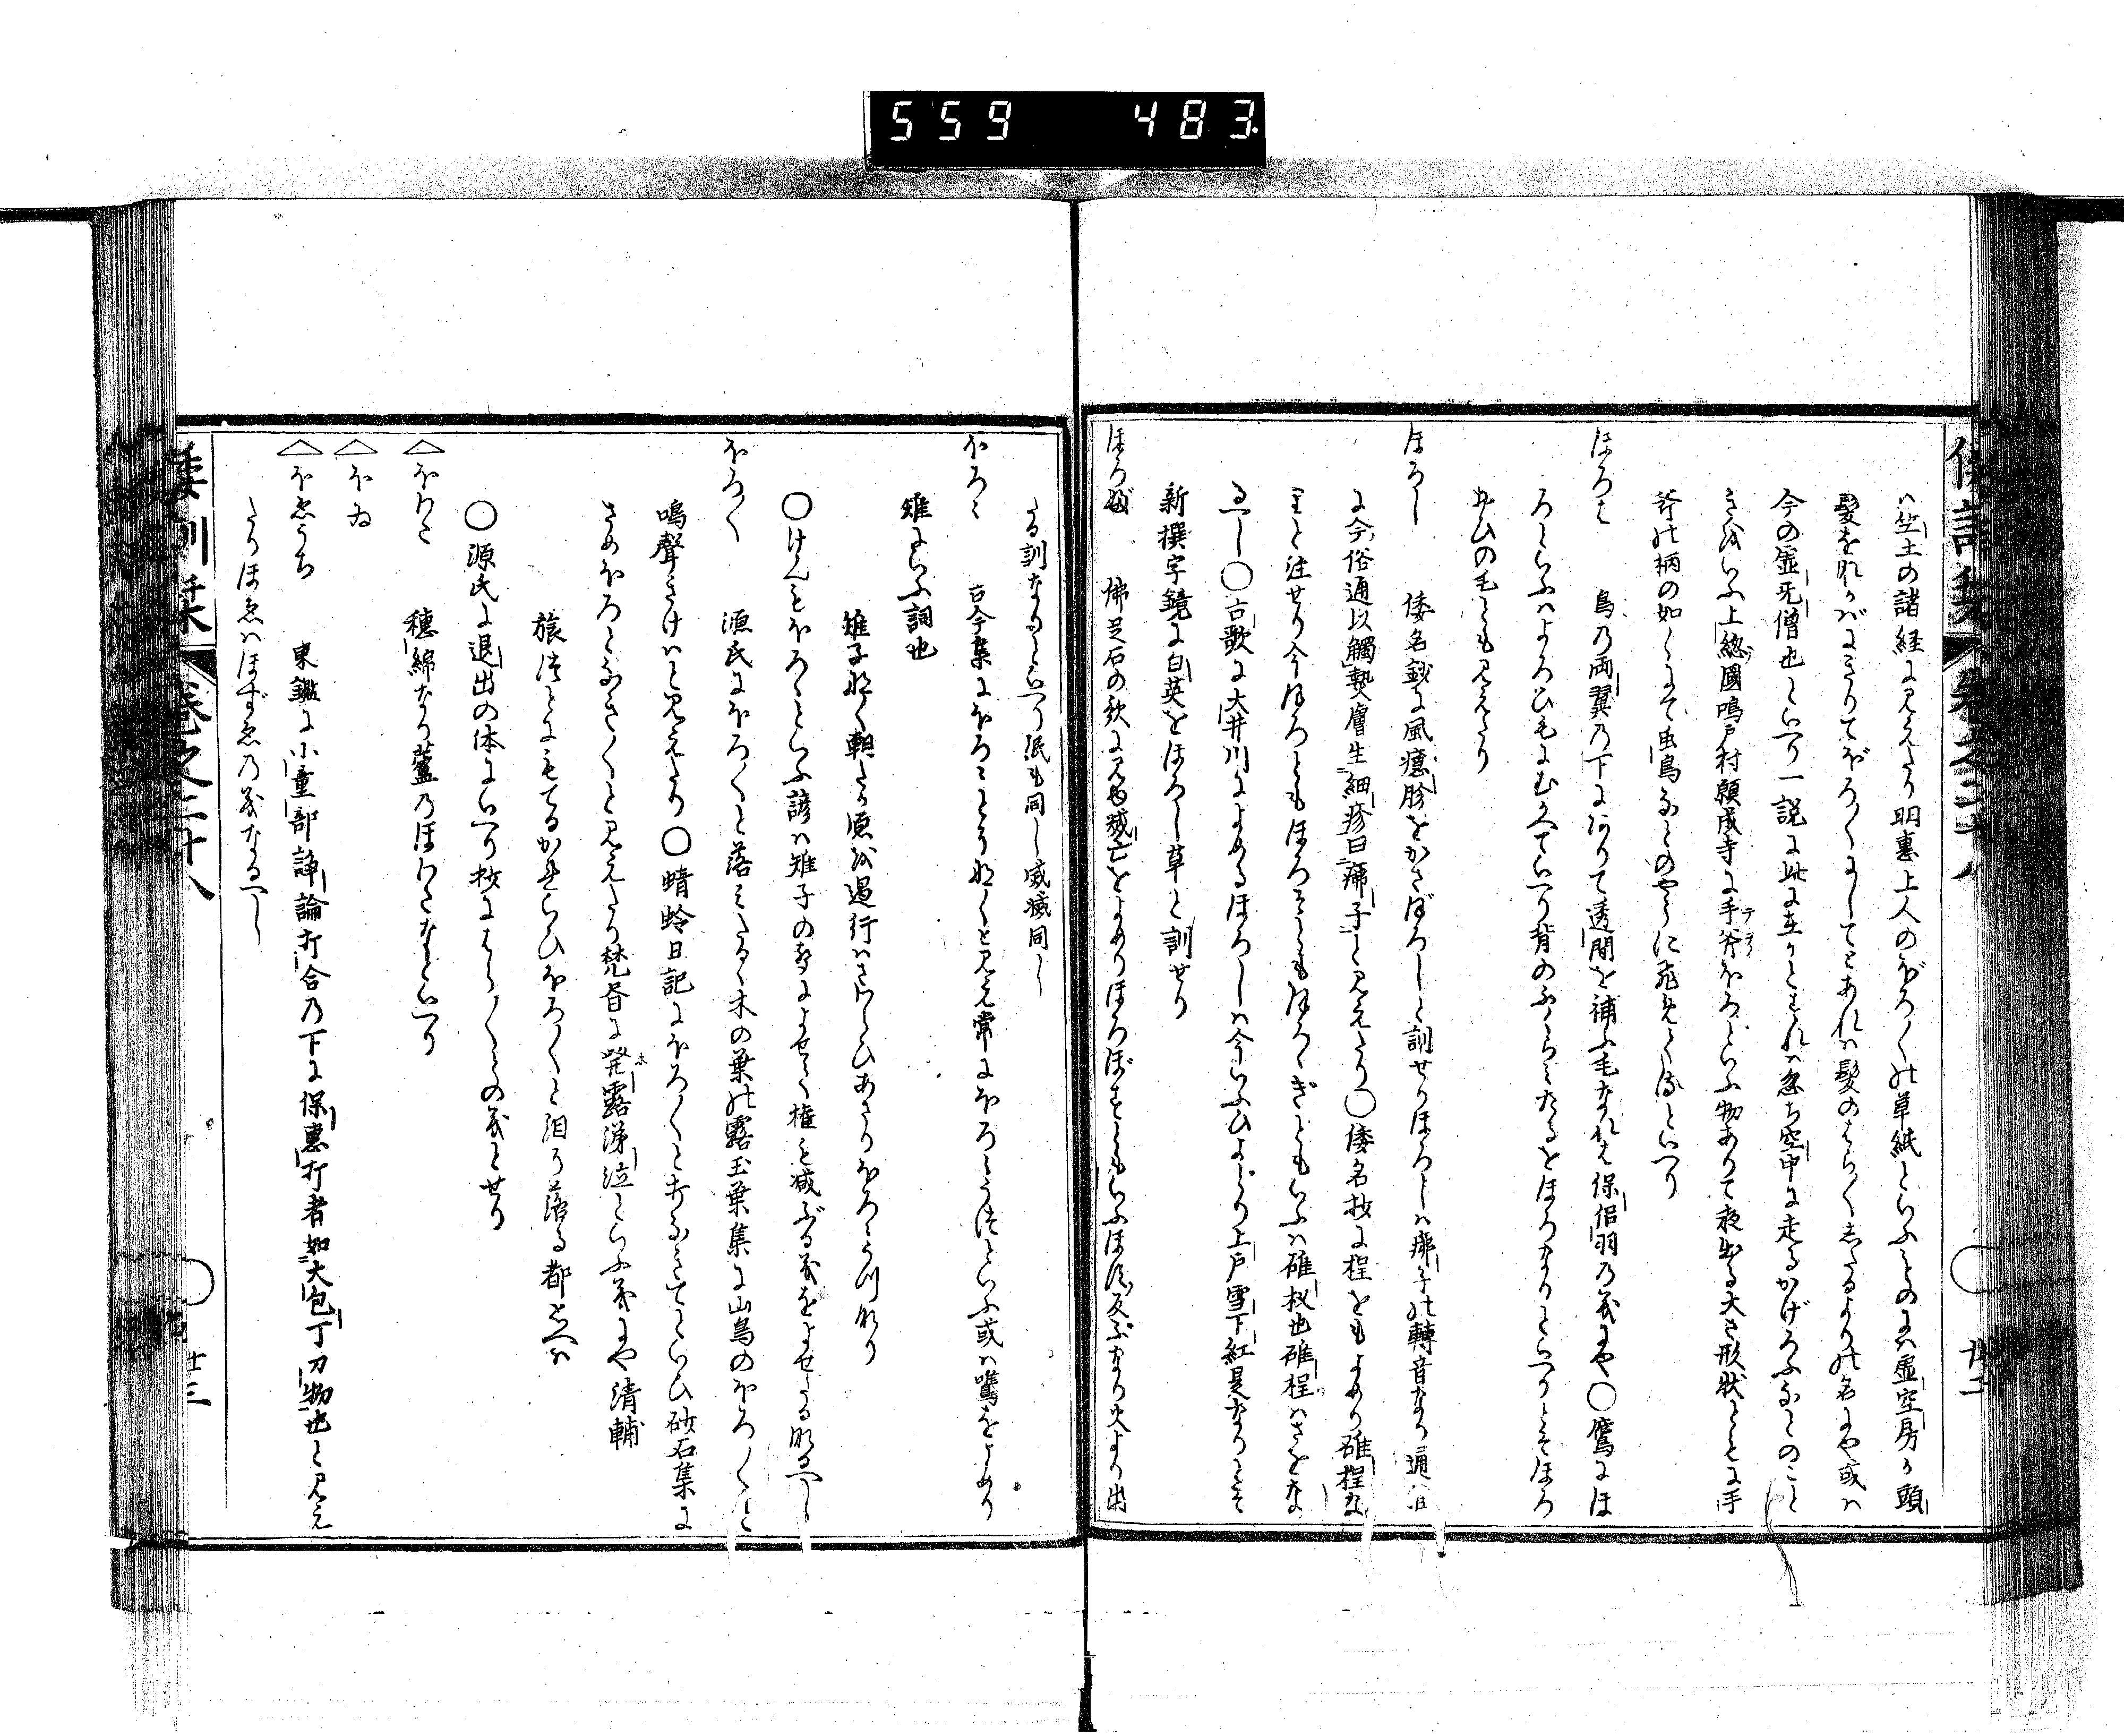 559 483
倭訓栞 卷之二十八 廿二
ハ竺土の諸経に見えたり明惠上人のぼろ〱の草紙といふものにハ虚空房ハ頭
髪をながばにきりてぼろ〱にしてとあれハ髪のはら〱したるよりの名にや或ハ
今の虚无僧也といへり一説に此に在りとすれハ忽ち空中に走るかげろふなどのこと
きをいふ上総國鳴戸村願成寺に手斧ほろといふ物ありて夜出る大さ形状ともに手
斧の柄の如くにて虫鳥などのやうに飛先く流といへり
ほろは 鳥の両翼の下にありて透間を補ふ毛なれは保侶羽の義にや〇鷹にほ
ろといふハよろひ毛にむかへていへり背のふくらミたるをほろなりといへりとそほろ
おひの毛とも見えたり
ほろし 倭名鈔に風癮胗をかさぼろしと訓せりほろしハ疿子の轉音なり通ハ沮
に今俗通以觸熱膚生細疹曰疿子と見えたり〇倭名抄に桯をもよめり碓桯な
りと注せり今ほろともほろそともほろゝぎともいふハ碓杈也碓桯ハさをな
るへし〇古歌に大井川によめるほろしハ今いふひよどり上戸雪下紅是なりとそ
新撰字鏡に白英をほろし草と訓せり
ほろぶ 佛足石の歌に見ゆ滅亡をよめりほろぼすともいふほ流反ふなり火より出
たる訓なりといへり泯も同し威滅同し
ほろゝ 古今集にほろゝとそ鳴くと見え常にほろゝうつといふ或ハ鷕をよめり
雉にいふ詞也
雉子鳴く朝たの原を過行ハさらひあさりほろゝうつなり
〇けんもほろゝといふ諺ハ雉子の声によせて權も滅ぶる義をよせたるなるへし
ほろ〱 源氏にほろ〱と落ミたるゝ木の葉の露玉葉集に山鳥のほろ〱と
鳴聲きけハと見えたり〇蜻蛉日記にほろ〱とうちなきてといひ砂石集に
さめほろとなきくと見えたり梵昏に発露涕泣といふ義にや清輔
旅はとにもてるかれいひほろ〱と泪そ落る都思へハ
〇源氏に退出の体にいへり抄にはら〱との義とせり
△ほわた 穗綿なり蘆のほわたなといへり
△ほゐ
△ほゑうち 東鑑に小童部諍論打合の下に保惠打者如大包丁刀物也と見え
たりほゑハほずゑの義なるへし
倭訓栞 卷之二十八 廿三